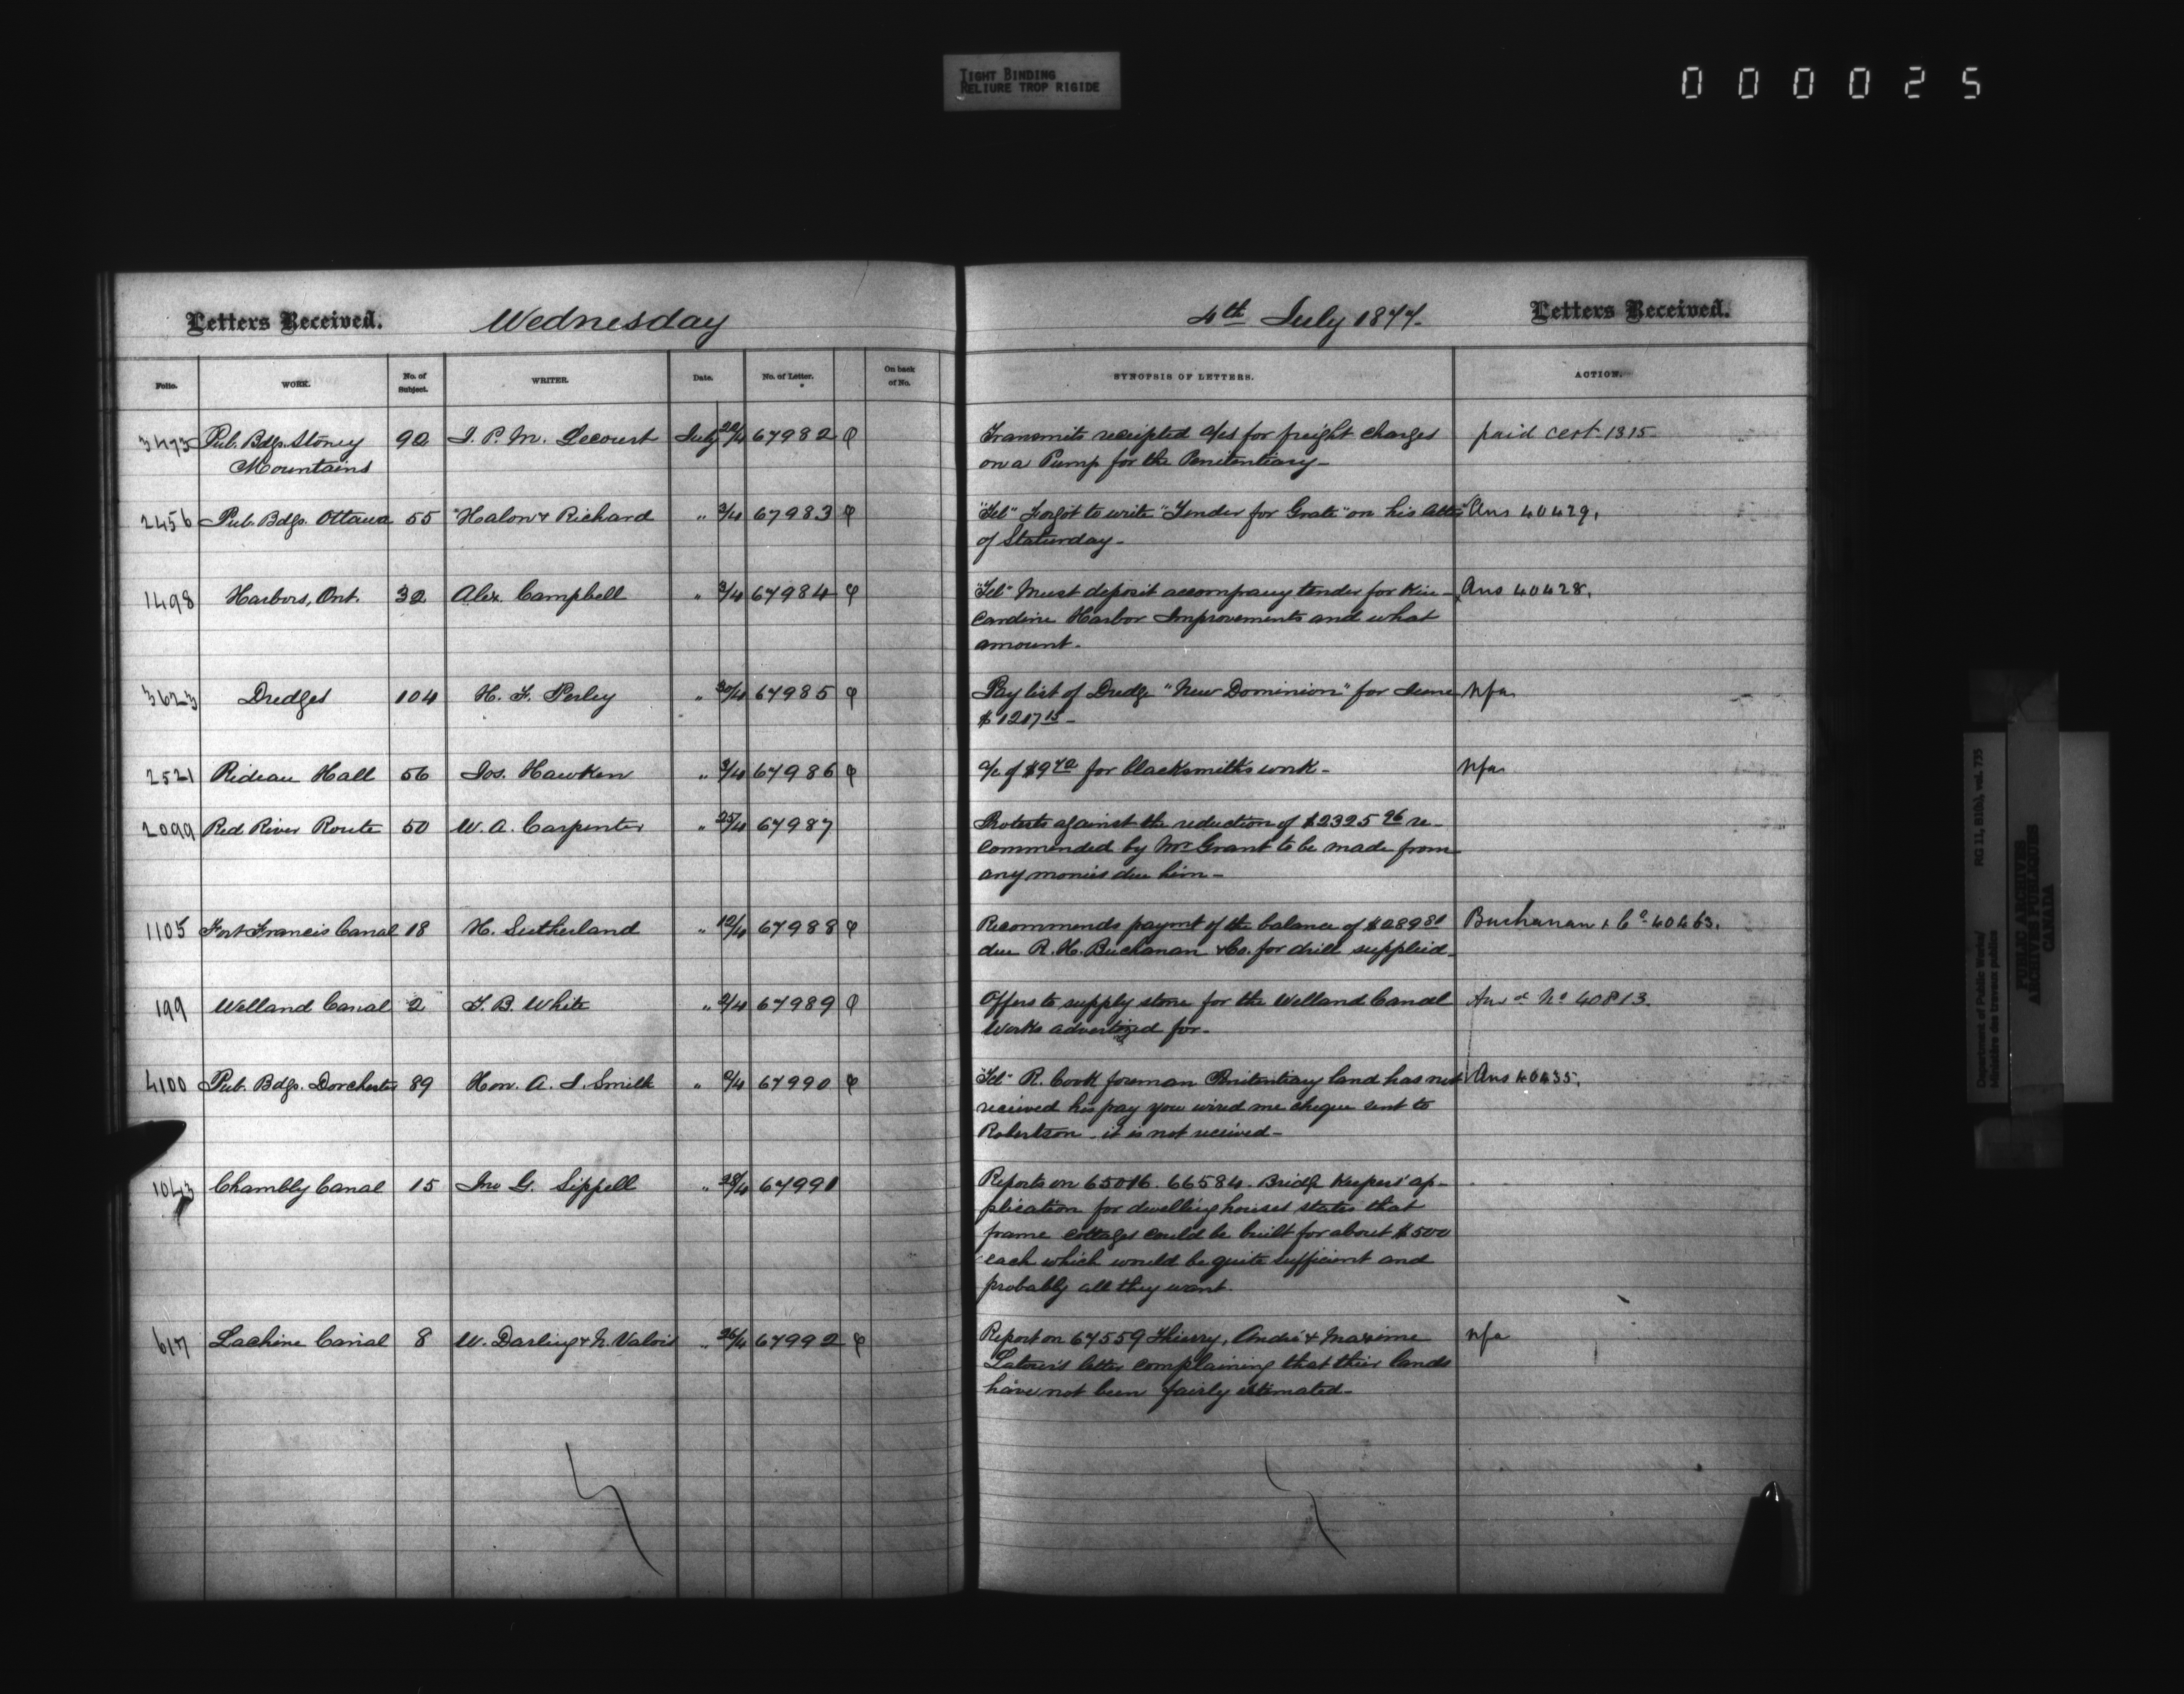 TIGHT BINDING
RELIURE TROP RIGIDE
000025
Letters Received. Wednesday
4th July 1877. Letters Received.
Folio. WORK. No. of Subject. WRITER. Date. No. of Letter. On back of No.
SYNOPSIS OF LETTERS. ACTION.
3473 Pub. Bdgs. Stoney 92 J. P. M. Lecourt July 22/4 67982 φ
Mountains
Transmits receipted a/cs for freight charges paid cert 1315
on a Pump for the Penitentiary-
2456 Pub. Bdgs. Ottawa 55 Halon & Richard " 3/4 67983 φ
"Tel" Forgot to write "Tender for Grate" on his Ans 40429.
of Staturday-
1498 Harbors, Ont. 32 Alex. Campbell " 3/4 67984 φ
"Tel" Must deposit accompany tender for Kin- Ans 40428.
cardine Harbor Improvements and what
amount.
3623 Dredges 104 H. F. Perley " 30/4 67985 φ
Pay list of Dredge "New Dominion" for June nfa
$1217 15-
2521 Rideau Hall 56 Jos. Hawken " 3/4 67986 φ
a/c of $9 70 for blacksmith's work- nfa
2099 Red River Route 50 W. A. Carpenter " 25/4 67987
Protests against the reduction of $2325 96 re-
commended by Mr Grant to be made from
any monies due him-
1105 Fort Francis Canal 18 H. Sutherland " 12/4 67988 φ
Recommends paymt of the balance of $289 80 Buchanan & Co. 40463.
due R. H. Buchanan & Co. for drill supplied-
199 Welland Canal 2 T. B. White " 2/4 67989 φ
Offers to supply stone for the Welland Canal Ansd No 40813.
Works advertized for-
4100 Pub. Bdgs. Dorchester 89 Hon. A. J. Smith " 2/4 67990 φ
"Tel" R. Cook foreman Penitentiary land has not Ans 40435.
received his pay you wired me cheque sent to
Robertson- it is not received-
1043 Chambly Canal 15 Jno G. Sippell " 28/4 67991
Reports on 65016. 66584. Bridge Keepers' ap-
plication for dwelling houses states that
frame cottages could be built for about $500
each which would be quite sufficient and
probably all they want.
617 Lachine Canal 8 W. Darling & N. Valois " 26/4 67992 φ
Report on 67559 Thierry, André & Maxime nfa
Latour's letter complaining that their lands
have not been fairly estimated-
Department of Public Works/ RG 11, B1(b), vol. 735
Ministère des travaux publics
PUBLIC ARCHIVES
ARCHIVES PUBLIQUES
CANADA